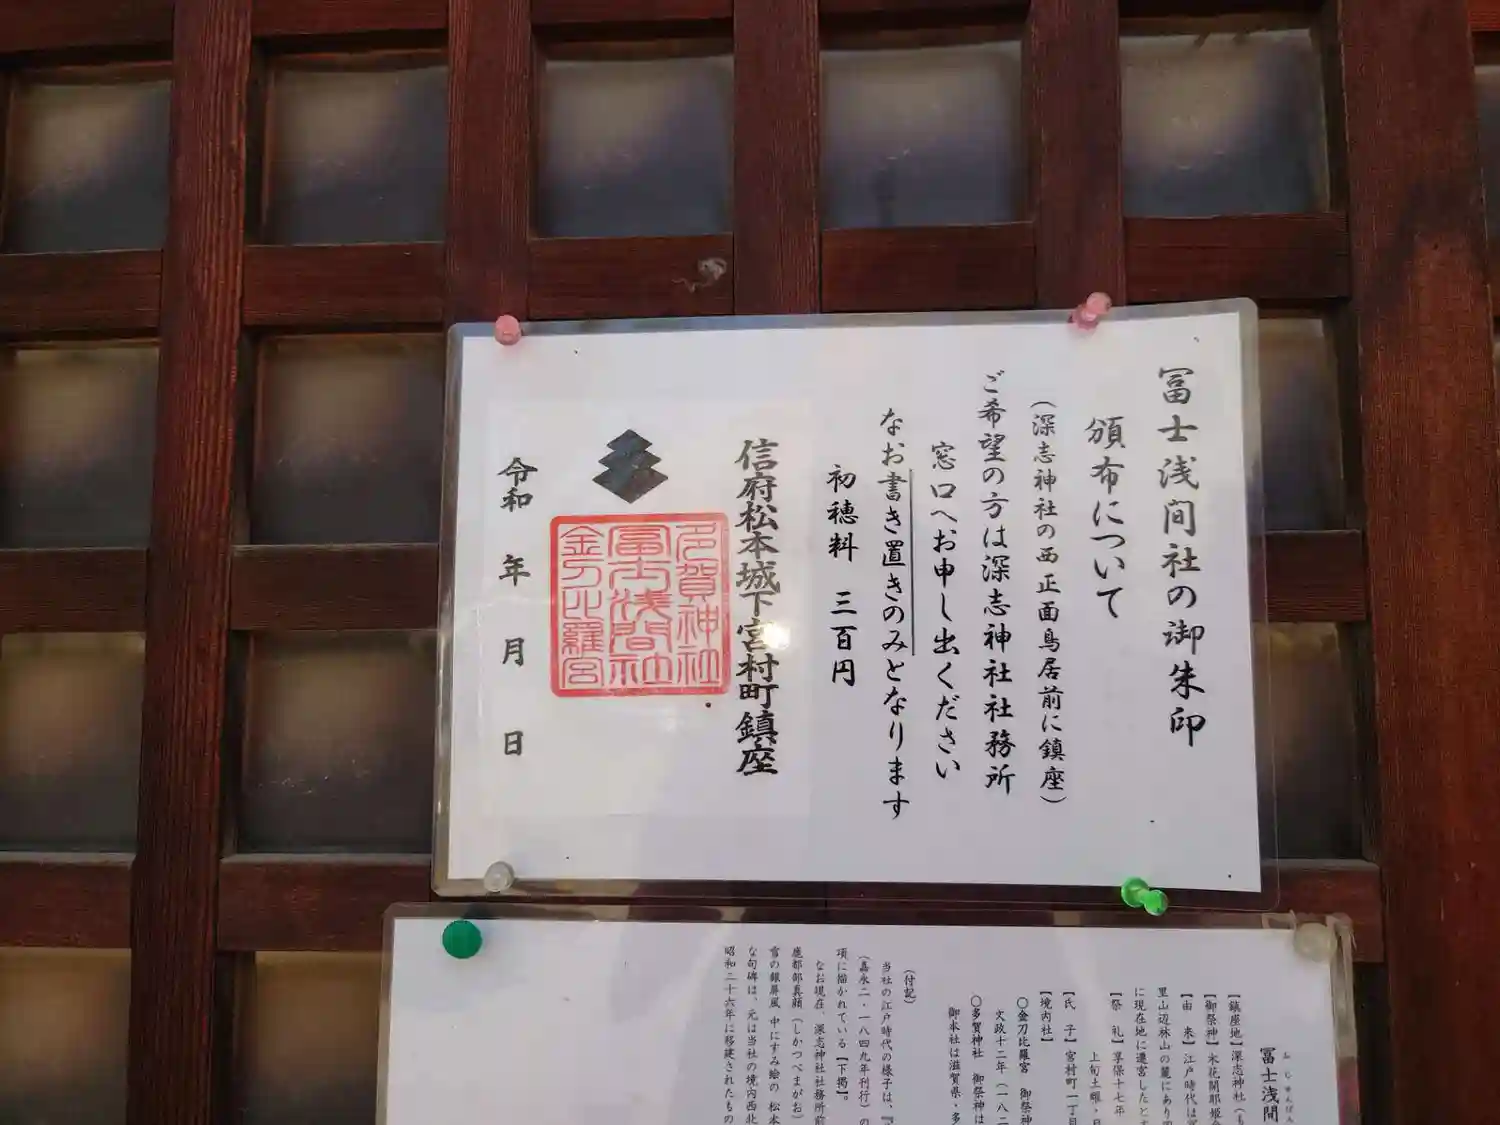 冨士浅間社の御朱印
頒布について
（深志神社の西 正面鳥居前に鎮座）
ご希望の方は深志神社社務所
窓口へお申し出ください
なお書き置きのみとなります
初穂料 三百円
信府松本城下宮村町鎮座
多賀神社
冨士浅間社
金刀比羅宮
令和 年 月 日
冨士浅間
【鎮座地】深志神社（も
【御祭神】木花開耶姫
【由 来】江戸時代は
里山辺林山の麓にあり
に現在地に遷宮したと
【祭 礼】享保十七年
上旬土曜・日
【氏 子】宮村町一丁目
【境内社】
〇金刀比羅宮 御祭神
文政十二年（一八二
〇多賀神社 御祭神は
御本社は滋賀県・多
（付記）
当社の江戸時代の様子は、『
（嘉永二・一八四九年刊行）の
項に描かれている【下掲】。
なお現在、深志神社社務所前
鹿都部真顔（しかつべまがお）
雪の銀屏風 中にすみ絵の 松本
な句碑は、元は当社の境内西北
昭和二十六年に移建されたもの